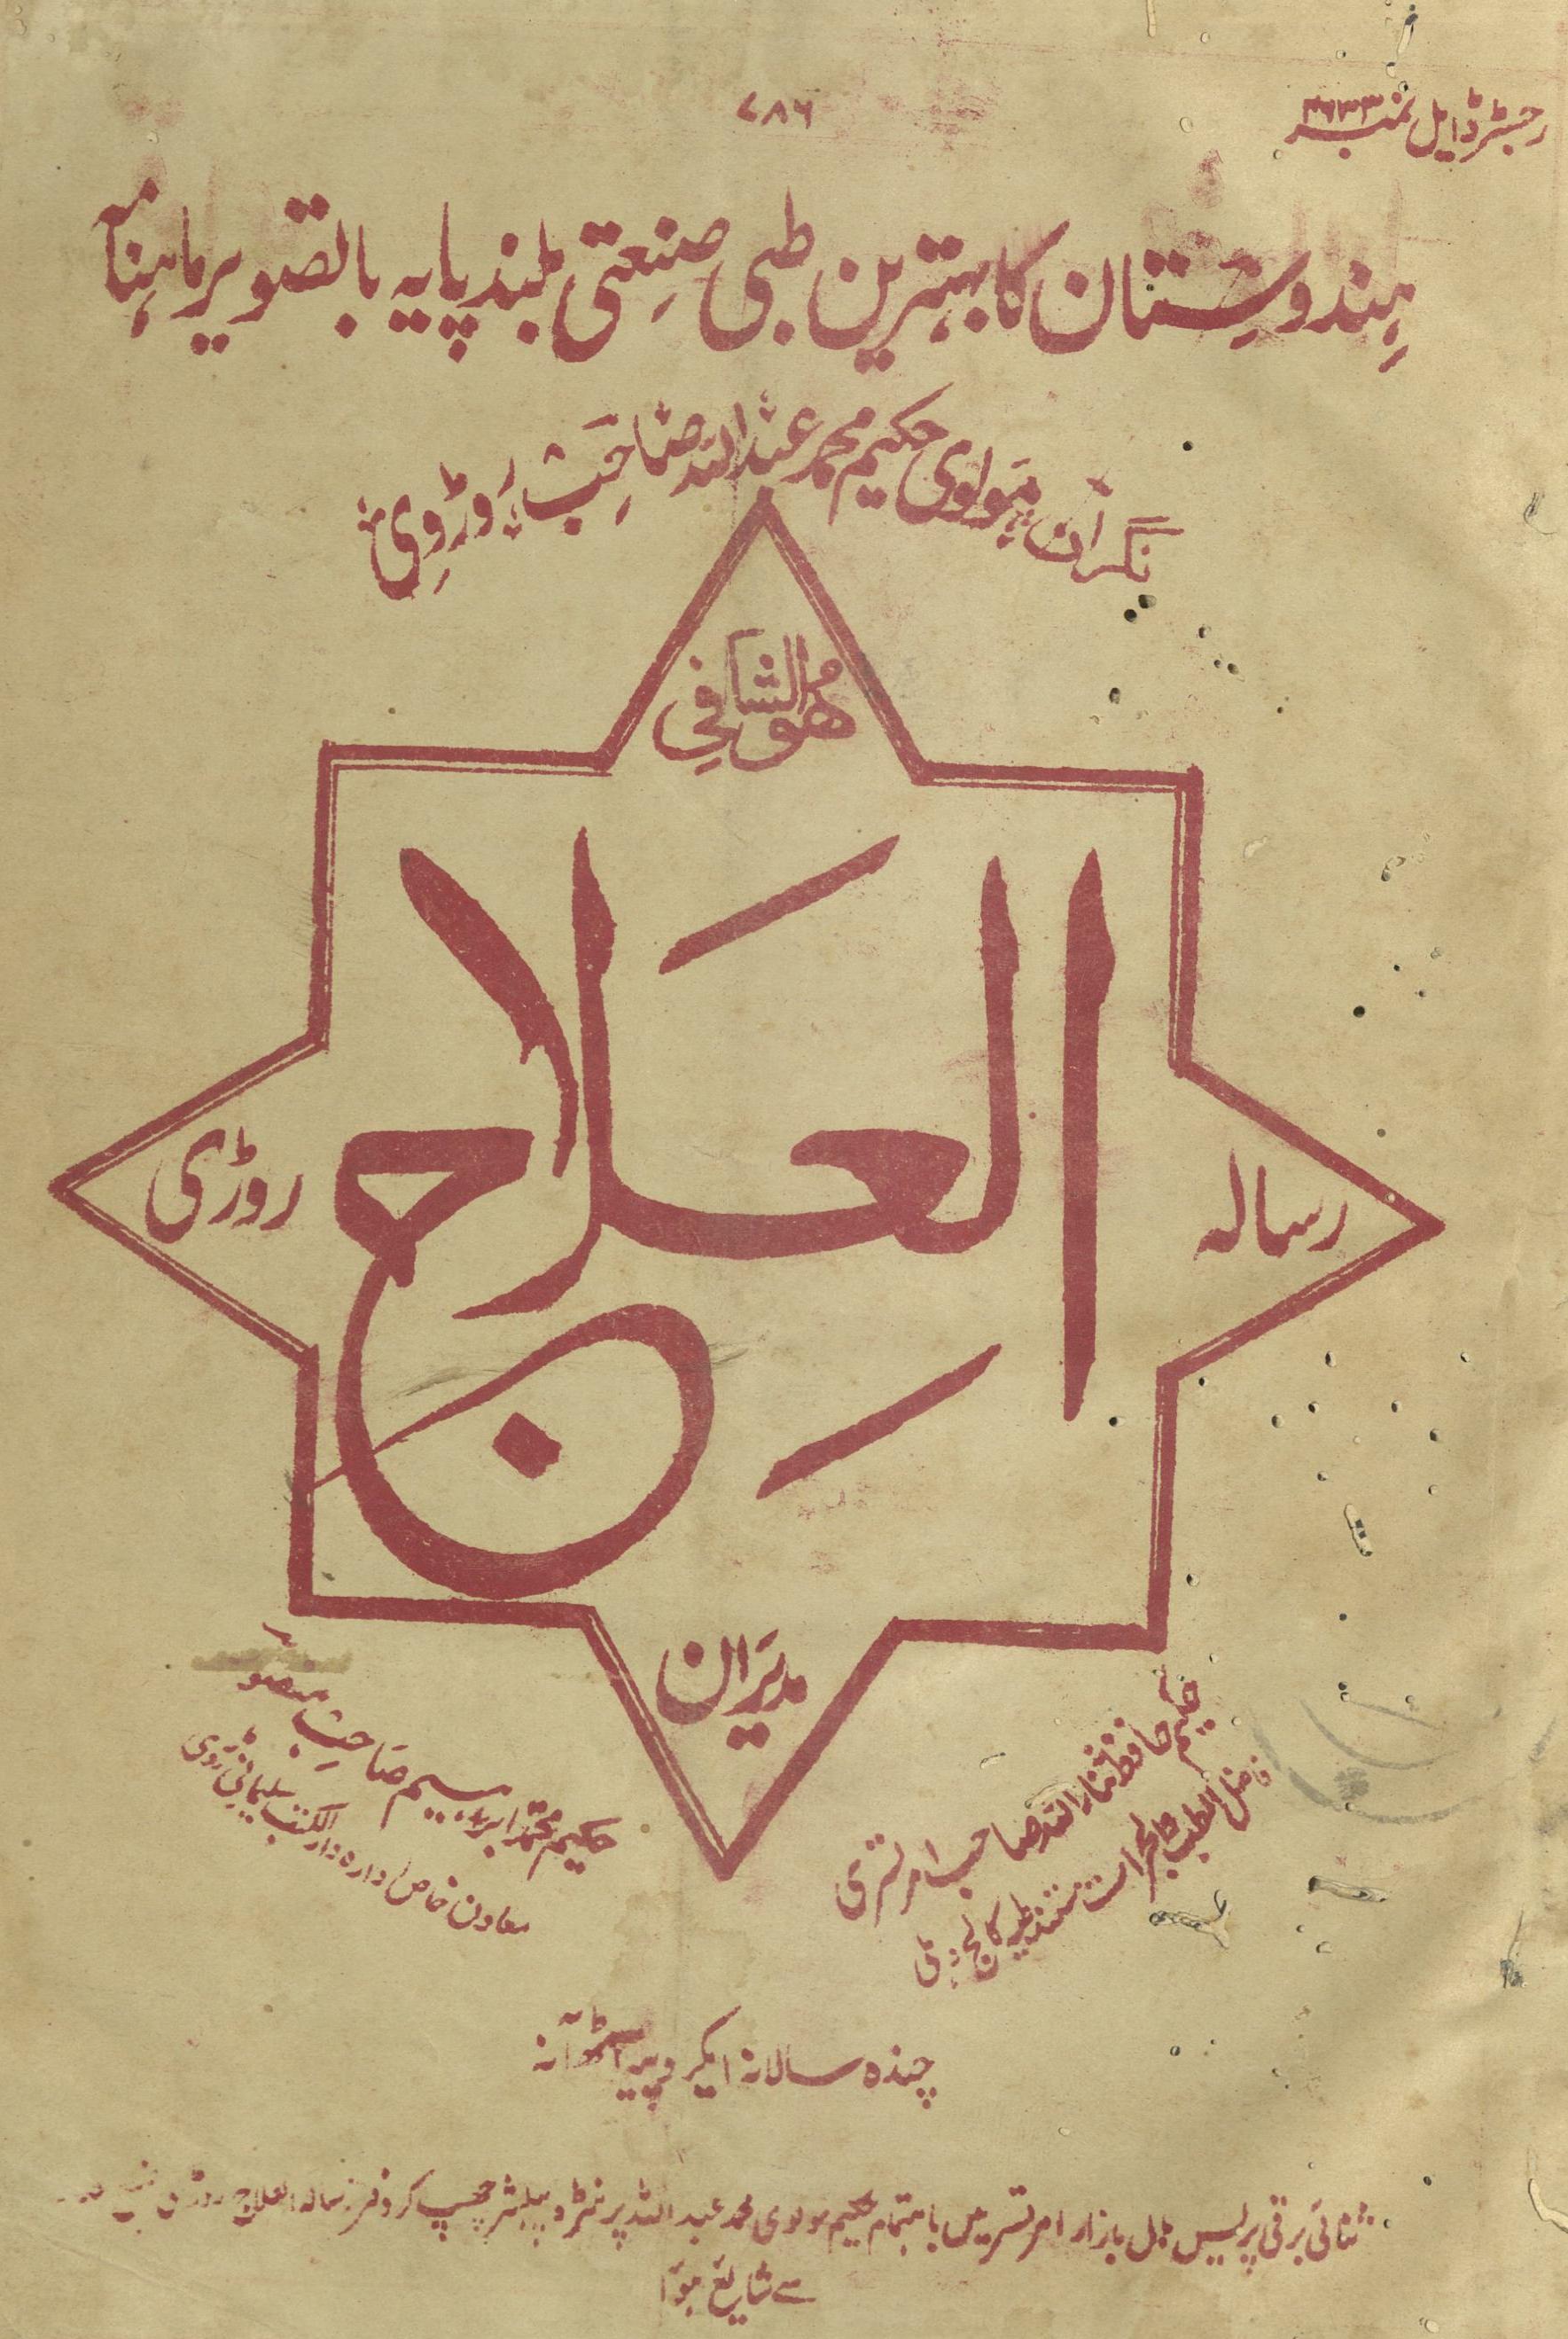 ۷۸۶
رجسٹرڈ ایل نمبر ۳۶۳۳
ہندوستان کا بہترین طبی صنعتی بلند پایہ باتصویر ماہنامہ
نگران مولوی حکیم محمد عبداللہ صاحب روڑوی
ھُوَالشافِی
رسالہ
العلاج
روڑی
مدیران
حکیم حافظ ثناءاللہ صاحب امرتسری
فاضل الطب والجراحت مستند طبیہ کالج دہلی
حکیم محمد ابراہیم صاحب منصور
معاون خاص ادارہ دارالکتب سلیمانی روڑی
چندہ سالانہ ایکروپیہ آٹھ آنہ
ثنائی برقی پریس ہال بازار امرتسر میں باہتمام حکیم مولوی محمد عبداللہ پرنٹر و پبلشر چھپ کر دفتر رسالہ العلاج روڑی ضلع
سے شایع ہوٓا